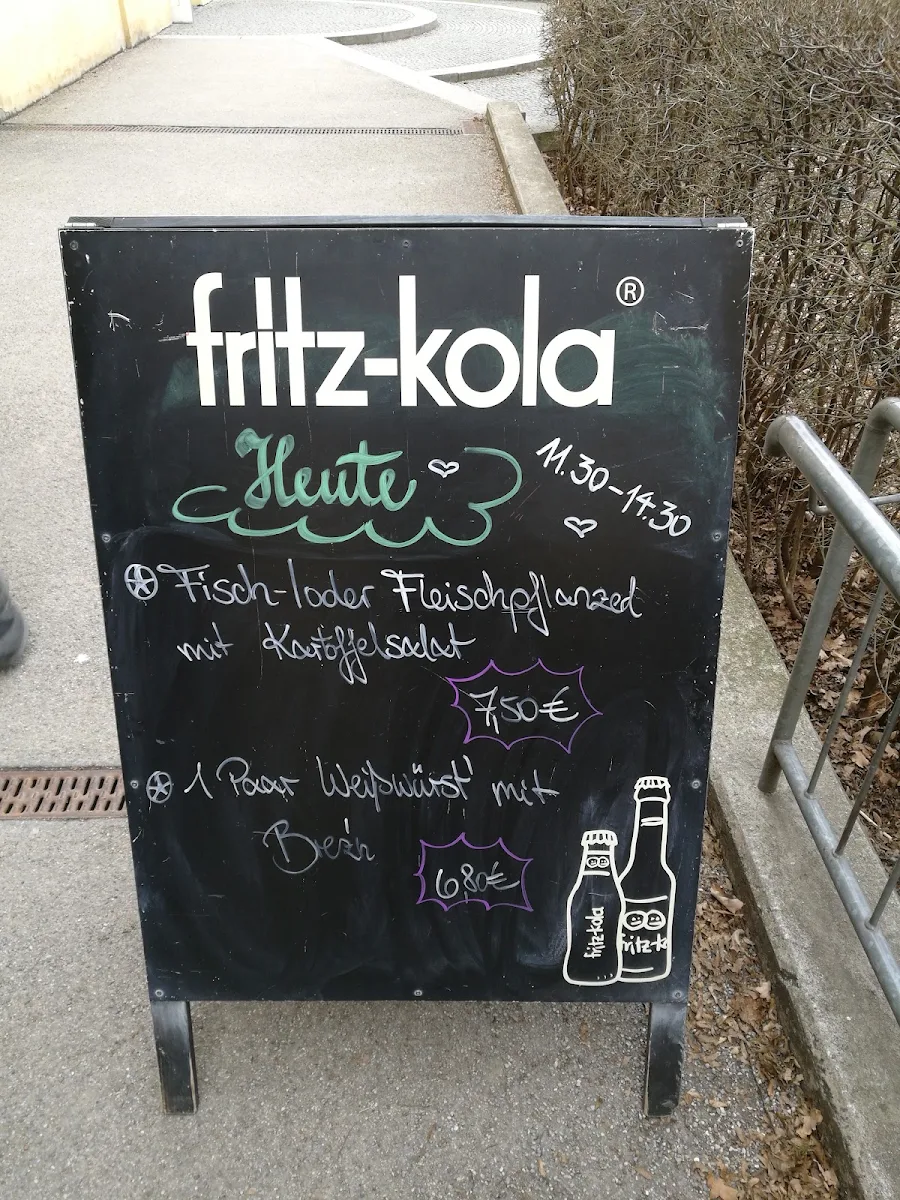 fritz-kola®
Heute
11.30-14.30
Fisch-/oder Fleischpflanzerl
mit Kartoffelsalat
7,50€
1 Paar Weißwürst' mit
Brez'n
6,80€
fritz-kola
fritz-k